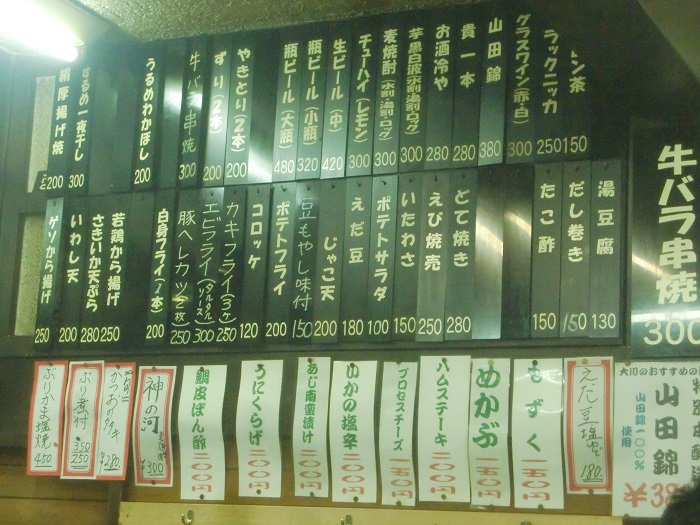 ラックニッカ 250
グラスワイン(赤・白) 300
山田錦 380
貴一本 280
お酒冷や 280
芋黒白波(水割・湯割・ロック) 300
麦焼酎(水割・湯割・ロック) 300
チューハイ(レモン) 300
生ビール(中) 420
瓶ビール(小瓶) 320
瓶ビール(大瓶) 480
やきとり(2本) 200
ずり(2本) 200
牛バラ串焼 300
うるめわかぼし 200
するめ一夜干し 300
厚揚げ焼 200
湯豆腐 130
だし巻き 150
たこ酢 150
どて焼き 280
えび焼売 250
いたわさ 150
ポテトサラダ 100
えだ豆 180
じゃこ天 200
豆もやし味付 150
ポテトフライ 200
コロッケ 120
カキフライ(3ヶ) 250
エビフライ(タルタルソース) 300
豚ヘレカツ(2枚) 250
白身フライ(1本) 200
若鶏から揚げ 250
さきいか天ぷら 280
いわし天 200
ゲソから揚げ 250
牛バラ串焼 300
大川のおすすめの
山田錦
山田錦一〇〇%使用
えだ豆塩ゆで 180
もずく 一五〇円
めかぶ 一五〇円
ハムステーキ 二〇〇円
プロセスチーズ 一〇〇円
いかの塩辛 二〇〇円
あじ南蛮漬け 二〇〇円
うにくらげ 二〇〇円
鯛皮ぽん酢 二〇〇円
神の河 ¥300
かつおのタタキ ¥280
ぶり煮付 350 250
ぶりかま塩焼 450